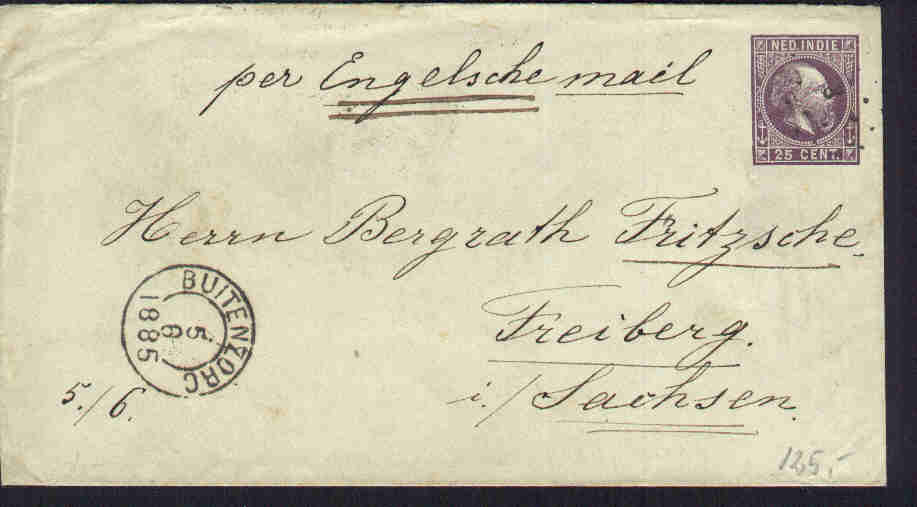 per Engelsche mail
NED. INDIE
25 CENT.
Herrn Bergrath Fritzsche
Freiberg.
i./ Sachsen.
BUITENZORG
5
6
1885
5./6.
125.-